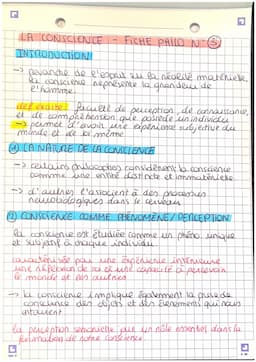 LA CONSCIENCE - FICHE PHILO N°③
INTRODUCTION
→ revanche de l'esprit sur la réalité matérielle,
la conscience représente la grandeur de
l'homme.
def exacte: faculté de perception, de connaissance,
et de compréhension que possède un individu
→ permet d'avoir une expérience subjective du
monde et de soi même.
① LA NATURE DE LA CONSCIENCE
→ certains philosophes considèrent la conscience
comme une entité distincte et immatérielle
→ d'autres l'associent à des processus
neurobiologiques dans le cerveau
② CONSCIENCE COMME PHÉNOMÈNE/PERCEPTION
La conscience est étudiée comme un phéno. unique
et subjectif à chaque individu
caractérisée par une expérience intérieure
une réflexion de soi et une capacité à percevoir
le monde et les autres
→ la conscience implique également la prise de
conscience des objets et des évènements qui nous
entourent
la perception sensorielle joue un rôle essentiel dans la
formation de notre conscience